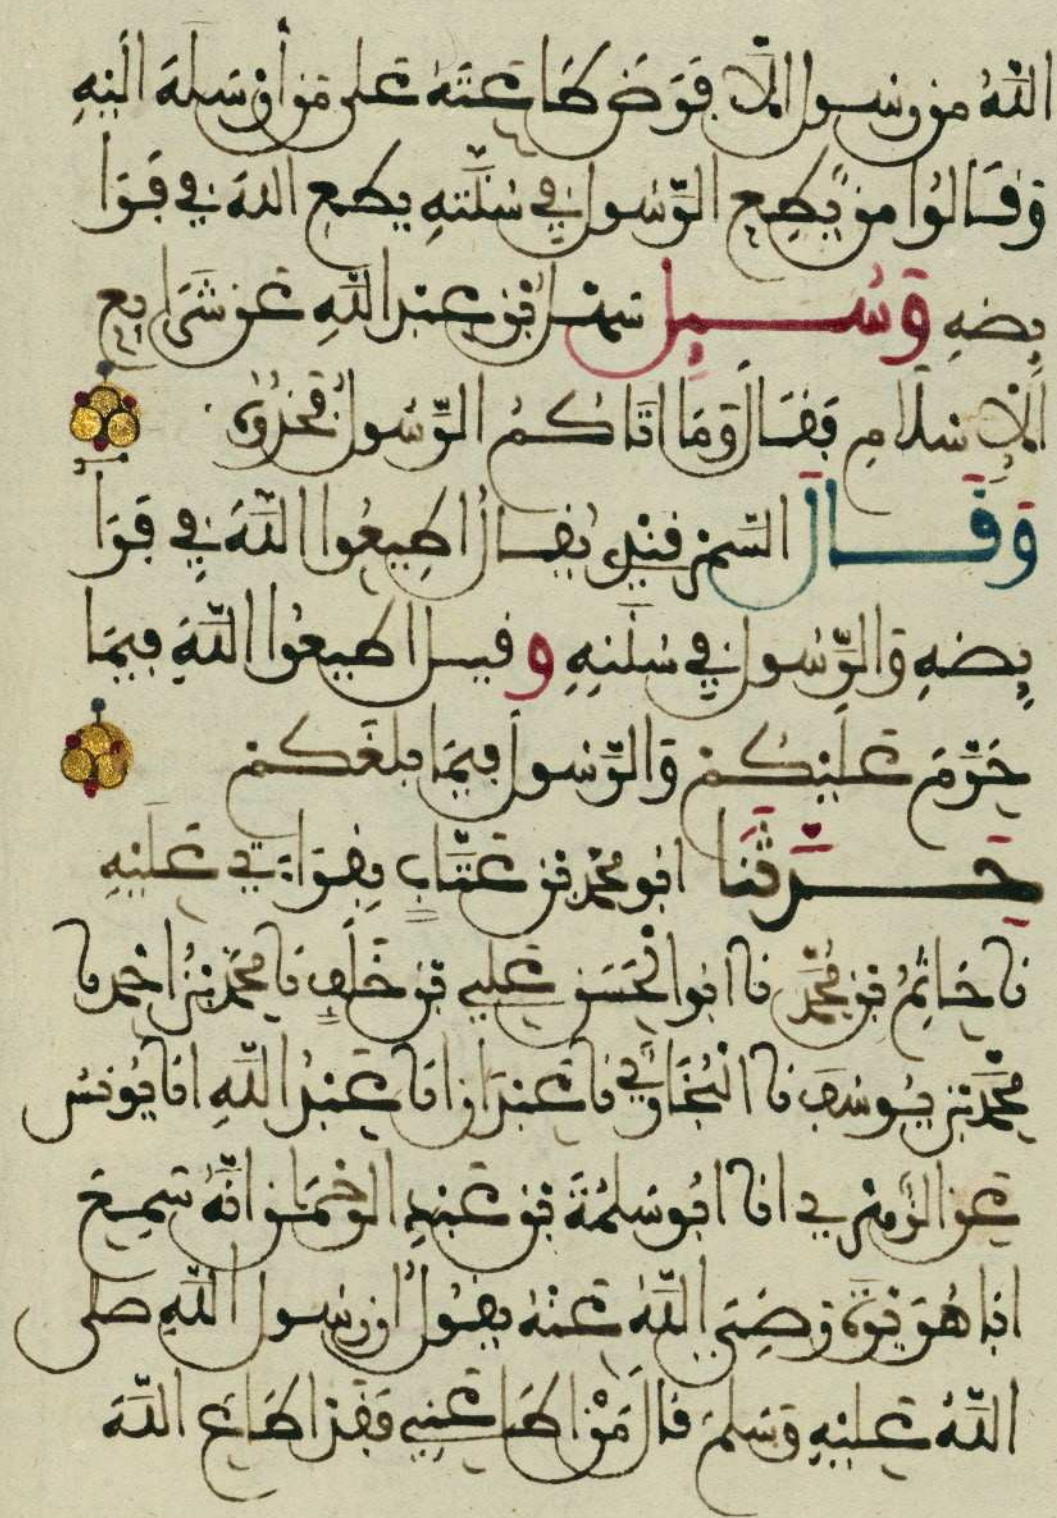 اللهُ من رسول إلّا فَرَضَ طَاعَتَهُ على مَن أرْسَلَهُ إلَيْهِ
وَقَالُوا مَنْ يُطِعِ الرَّسُولَ فِي سُنَّتِهِ يطع اللهَ فِي فَرَا
يِضهِ وَسُيِلَ سَهْلُ بْنُ عَبْدِ اللَّهِ عَن شَرَايِع
الإسْلَامِ فَقَالَ وَمَا اتَاكُمُ الرَّسُولُ فَخُذُوهُ
وَقَالَ السَّمَرْقَنْدِي يُقَالُ أطِيعُوا اللَّهَ فِي فَرَا
يِضهِ وَالرَّسُولَ فِي سُنَّتِهِ وقيل أطيعُوا اللَّهَ فِيمَا
حَرَّمَ عَلَيْكُمْ وَالرَّسُولَ فِيمَا بلغَكُمْ
حَدَّثَنَا ابُو محمَّد بْنُ عَتَّابٍ بِقِرَاءَتِي عَلَيْهِ
نا حَاتِمُ بْنُ مُحَمَّدٍ نا ابُو الْحَسَنِ عَلِيُّ بْنُ خَلَفٍ نا مُحَمَّدُ بْنُ احْمَدَ نا
مُحَمَّدُ بْنُ يُوسُفَ نا الْبُخَارِيُّ نا عَبْدَانُ انا عَبْدُ اللَّهِ انا يُونُسُ
عَنِ الزُّهْرِيِّ انا ابُو سَلَمَةَ بْنُ عَبْدِ الرَّحْمَنِ انَّهُ سَمِعَ
ابَا هُرَيْرَةَ رَضِيَ اللَّهُ عَنْهُ يقُولُ إنَّ رسول اللَّهِ صلى
اللَّهُ عَلَيْهِ وَسَلَّمَ قَالَ مَنْ اطَاعَنِي فَقَدْ اطَاعَ اللَّهَ